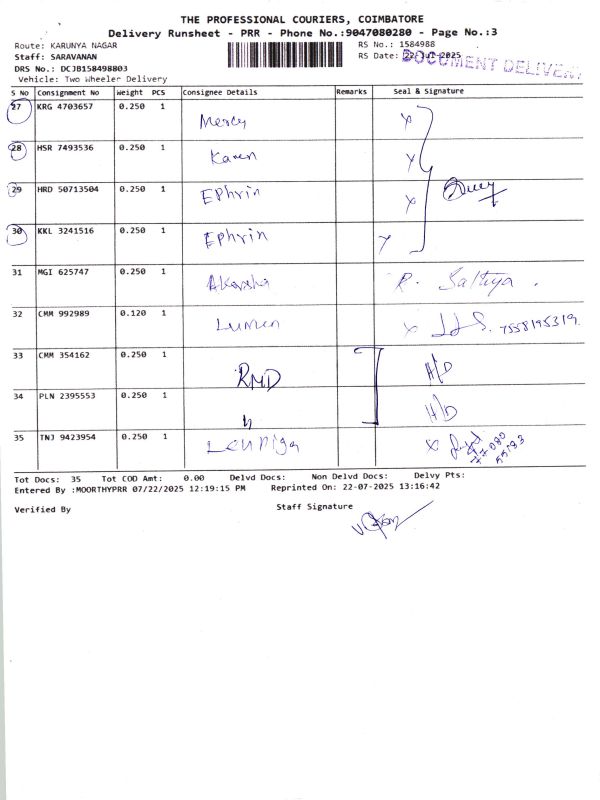 THE PROFESSIONAL COURIERS, COIMBATORE
Delivery Runsheet - PRR - Phone No.:9047080280 - Page No.:3
Route: KARUNYA NAGAR RS No.: 1584988
Staff: SARAVANAN RS Date: 22-Jul-2025
DOCUMENT DELIVERY
DRS No.: DCJB158498803
Vehicle: Two Wheeler Delivery
S No Consignment No Weight PCS Consignee Details Remarks Seal & Signature
27 KRG 4703657 0.250 1 Mercy x
28 HSR 7493536 0.250 1 Karen x
29 HRD 50713504 0.250 1 Ephrin x
30 KKL 3241516 0.250 1 Ephrin x
31 MGI 625747 0.250 1 Akarsha R. Sathya.
32 CMM 992989 0.120 1 Lumen x 7558195319
33 CMM 354162 0.250 1 RMD H/D
34 PLN 2395553 0.250 1 " H/D
35 TNJ 9423954 0.250 1 x
Tot Docs: 35 Tot COD Amt: 0.00 Delvd Docs: Non Delvd Docs: Delvy Pts:
Entered By :MOORTHYPRR 07/22/2025 12:19:15 PM Reprinted On: 22-07-2025 13:16:42
Verified By Staff Signature